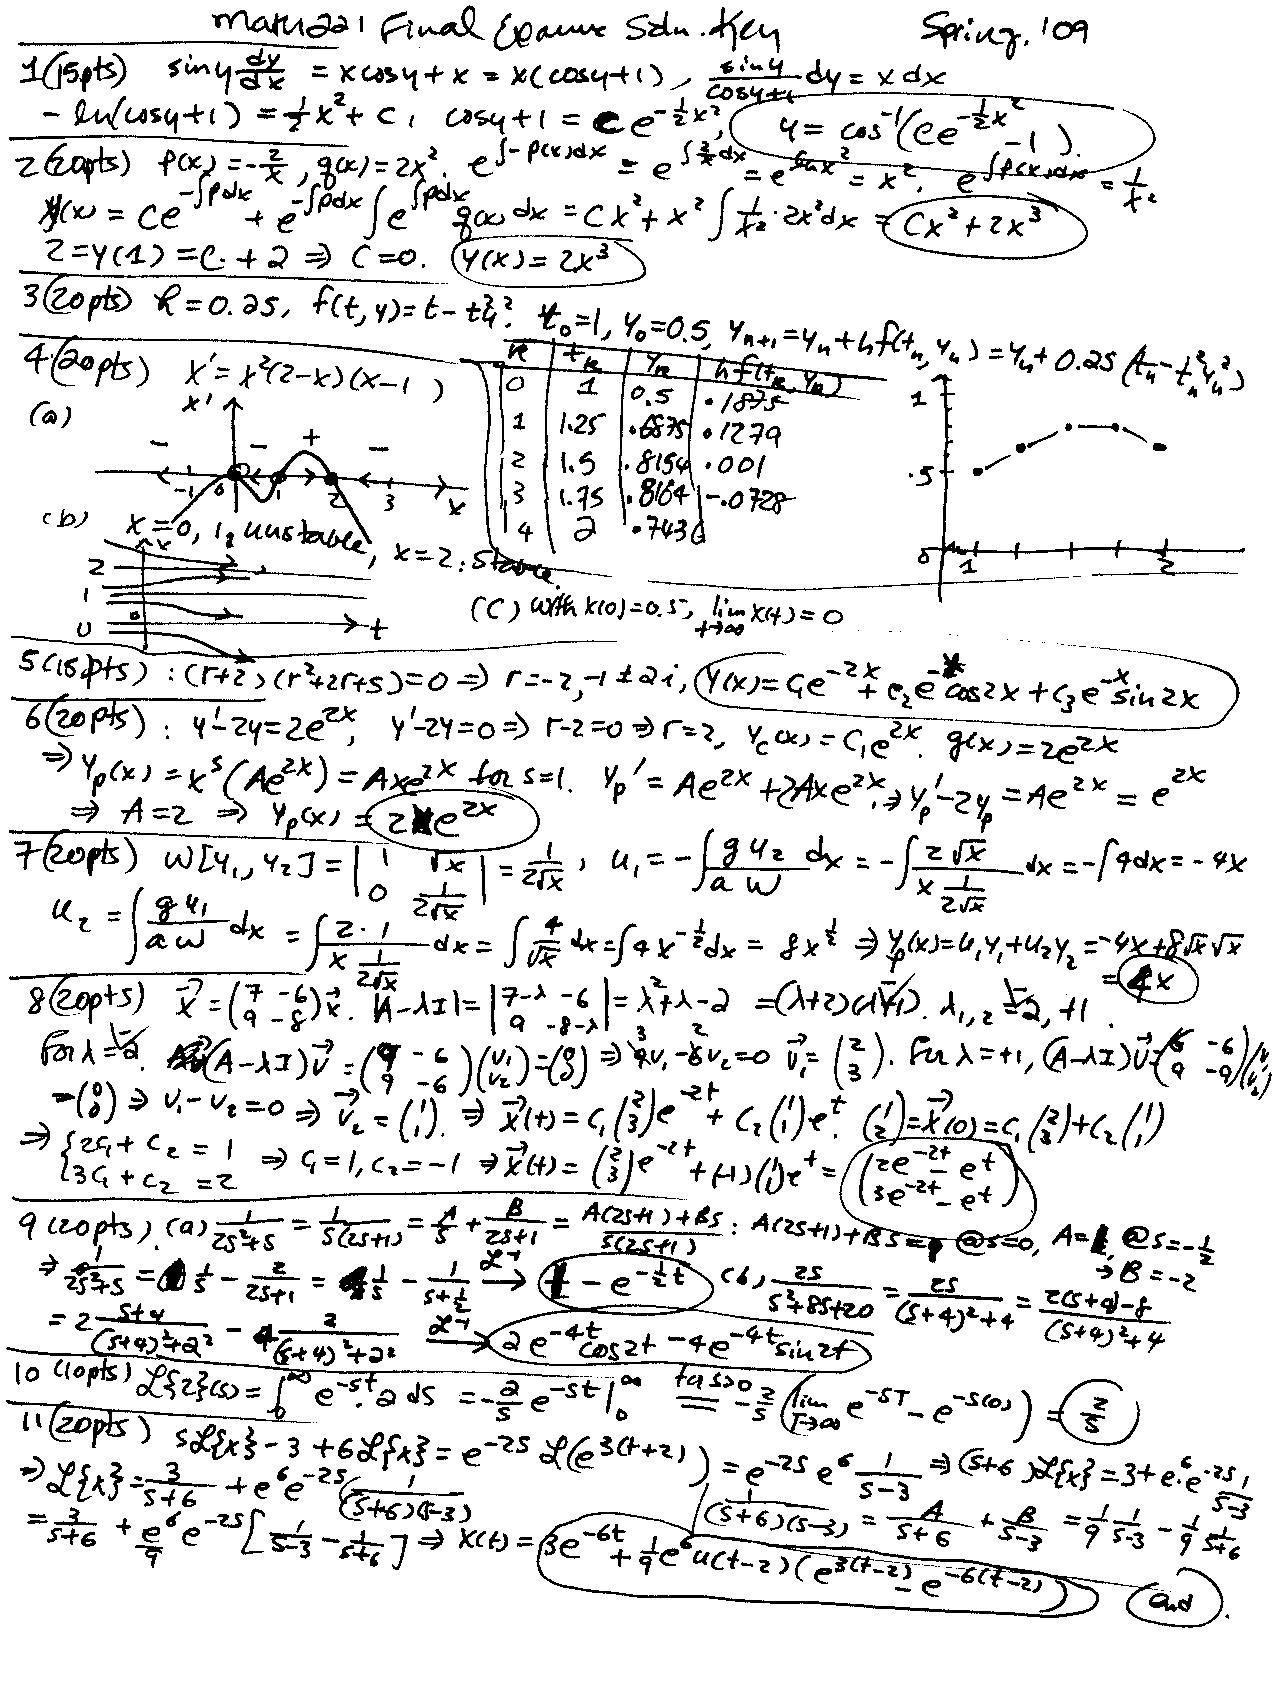 Math221 Final Exam Soln. Key Spring, '09
1(15pts) siny dy/dx = xcosy + x = x(cosy+1), siny/(cosy+1) dy = x dx
- ln(cosy+1) = ½x² + C, cosy+1 = C e^{-½x²}, y = cos⁻¹(Ce^{-½x²} - 1).
2(20pts) p(x) = -2/x, q(x) = 2x². e^{∫-p(x)dx} = e^{∫2/x dx} = e^{ln x²} = x². e^{∫p(x)dx} = 1/x²
y(x) = Ce^{-∫pdx} + e^{-∫pdx} ∫ e^{∫pdx} q(x) dx = Cx² + x² ∫ 1/x² · 2x² dx = Cx² + 2x³
2 = y(1) = C + 2 ⇒ C = 0. y(x) = 2x³
3(20pts) h = 0.25, f(t,y) = t - t²y². t₀=1, y₀=0.5, y_{n+1} = y_n + h f(t_n, y_n) = y_n + 0.25 (t_n - t_n² y_n²)
k t_k y_k h f(t_k, y_k)
0 1 0.5 .1875
1 1.25 .6875 .1279
2 1.5 .8154 .001
3 1.75 .8164 -.0728
4 2 .7436
1
.5
0 1 2
4(20pts) x' = x²(2-x)(x-1)
(a) x'
- - + -
-1 0 1 2 3 x
(b) x=0, 1, unstable, x=2: stable.
x
2
1
0 0 t
(C) with x(0)=0.5, lim_{t→∞} x(t) = 0
5(15pts) : (r+2)(r²+2r+5) = 0 ⇒ r = -2, -1 ± 2i, y(x) = C₁e^{-2x} + C₂e^{-x}cos2x + C₃e^{-x}sin2x
6(20pts) : y'-2y = 2e^{2x}, y'-2y=0 ⇒ r-2=0 ⇒ r=2, y_c(x) = C₁e^{2x}. g(x) = 2e^{2x}
⇒ y_p(x) = x^s(Ae^{2x}) = Axe^{2x} for s=1. y_p' = Ae^{2x} + 2Axe^{2x}, ⇒ y_p' - 2y_p = Ae^{2x} = e^{2x}
⇒ A=2 ⇒ y_p(x) = 2xe^{2x}
7(20pts) W[y₁, y₂] = |1 √x; 0 1/(2√x)| = 1/(2√x), u₁ = -∫ g y₂/(aW) dx = -∫ 2√x/(x 1/(2√x)) dx = -∫4dx = -4x
u₂ = ∫ g y₁/(aW) dx = ∫ 2·1/(x 1/(2√x)) dx = ∫ 4/√x dx = ∫4x^{-½}dx = 8x^{½} ⇒ y_p(x) = u₁y₁+u₂y₂ = -4x+8√x√x
= 4x
8(20pts) x⃗' = (7 -6; 9 -8)x⃗. |A-λI| = |7-λ -6; 9 -8-λ| = λ²+λ-2 = (λ+2)(λ-1). λ₁,₂ = -2, +1.
For λ=-2. (A-λI)v⃗ = (9 -6; 9 -6)(v₁; v₂) = (0; 0) ⇒ 3v₁ - 2v₂ = 0 v⃗₁ = (2; 3). For λ=+1, (A-λI)v⃗ = (6 -6; 9 -9)(v₁; v₂)
= (0; 0) ⇒ v₁-v₂=0 ⇒ v⃗₂ = (1; 1). ⇒ x⃗(t) = C₁(2; 3)e^{-2t} + C₂(1; 1)e^t. (1; 2) = x⃗(0) = C₁(2; 3) + C₂(1; 1)
⇒ {2C₁ + C₂ = 1; 3C₁ + C₂ = 2 ⇒ C₁=1, C₂=-1 ⇒ x⃗(t) = (2; 3)e^{-2t} + (-1)(1; 1)e^t = (2e^{-2t} - e^t; 3e^{-2t} - e^t)
9(20pts). (a) 1/(2s²+s) = 1/(s(2s+1)) = A/s + B/(2s+1) = (A(2s+1)+Bs)/(s(2s+1)) : A(2s+1)+Bs = 1 @s=0, A=1, @s=-½ ⇒ B=-2
⇒ 1/(2s²+s) = 1/s - 2/(2s+1) = 1/s - 1/(s+½) →(ℒ⁻¹) 1 - e^{-½t} (b) 2s/(s²+8s+20) = 2s/((s+4)²+4) = (2(s+4)-8)/((s+4)²+4)
= 2 (s+4)/((s+4)²+2²) - 4 2/((s+4)²+2²) →(ℒ⁻¹) 2e^{-4t}cos2t - 4e^{-4t}sin2t
10(10pts) ℒ{2}(s) = ∫₀^∞ e^{-st}·2 ds = -2/s e^{-st}|₀^∞ =(for s>0) -2/s (lim_{T→∞} e^{-sT} - e^{-s(0)}) = 2/s
11(20pts) sℒ{x} - 3 + 6ℒ{x} = e^{-2s} ℒ(e^{3(t+2)}) = e^{-2s} e⁶ 1/(s-3) ⇒ (s+6)ℒ{x} = 3 + e⁶·e^{-2s} 1/(s-3)
⇒ ℒ{x} = 3/(s+6) + e⁶e^{-2s}(1/((s+6)(s-3))) 1/((s+6)(s-3)) = A/(s+6) + B/(s-3) = 1/9 1/(s-3) - 1/9 1/(s+6)
= 3/(s+6) + e⁶/9 e^{-2s}[1/(s-3) - 1/(s+6)] ⇒ x(t) = 3e^{-6t} + 1/9 e⁶u(t-2)(e^{3(t-2)} - e^{-6(t-2)}) end.